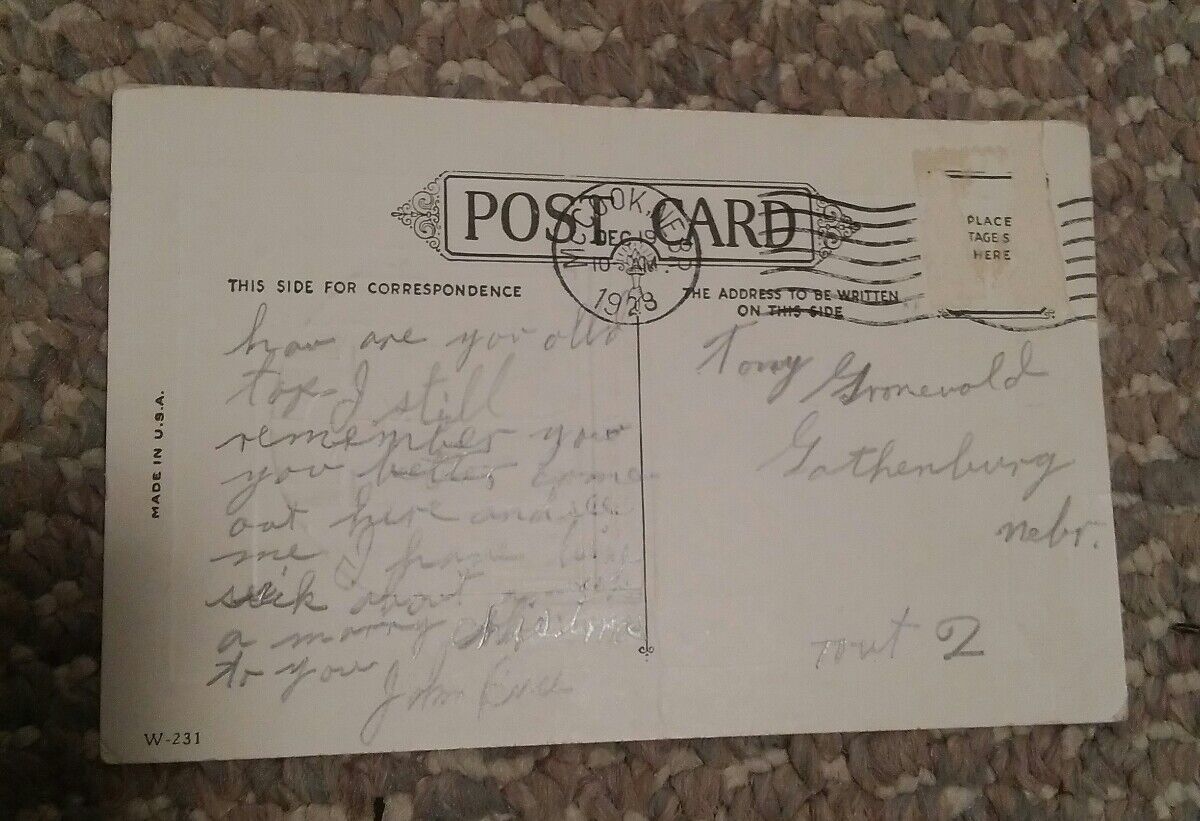 POST CARD
McCOOK, NEBR.
DEC 19
10 AM
1928
PLACE
TAGE S
HERE
THIS SIDE FOR CORRESPONDENCE
THE ADDRESS TO BE WRITTEN
ON THIS SIDE
how are you old
top I still
remember you
you better come
out here and see
me I have been
seik about
a marry christmas
to you
John
Tony Gronewold
Gothenburg
Nebr.
rout 2
MADE IN U.S.A.
W-231